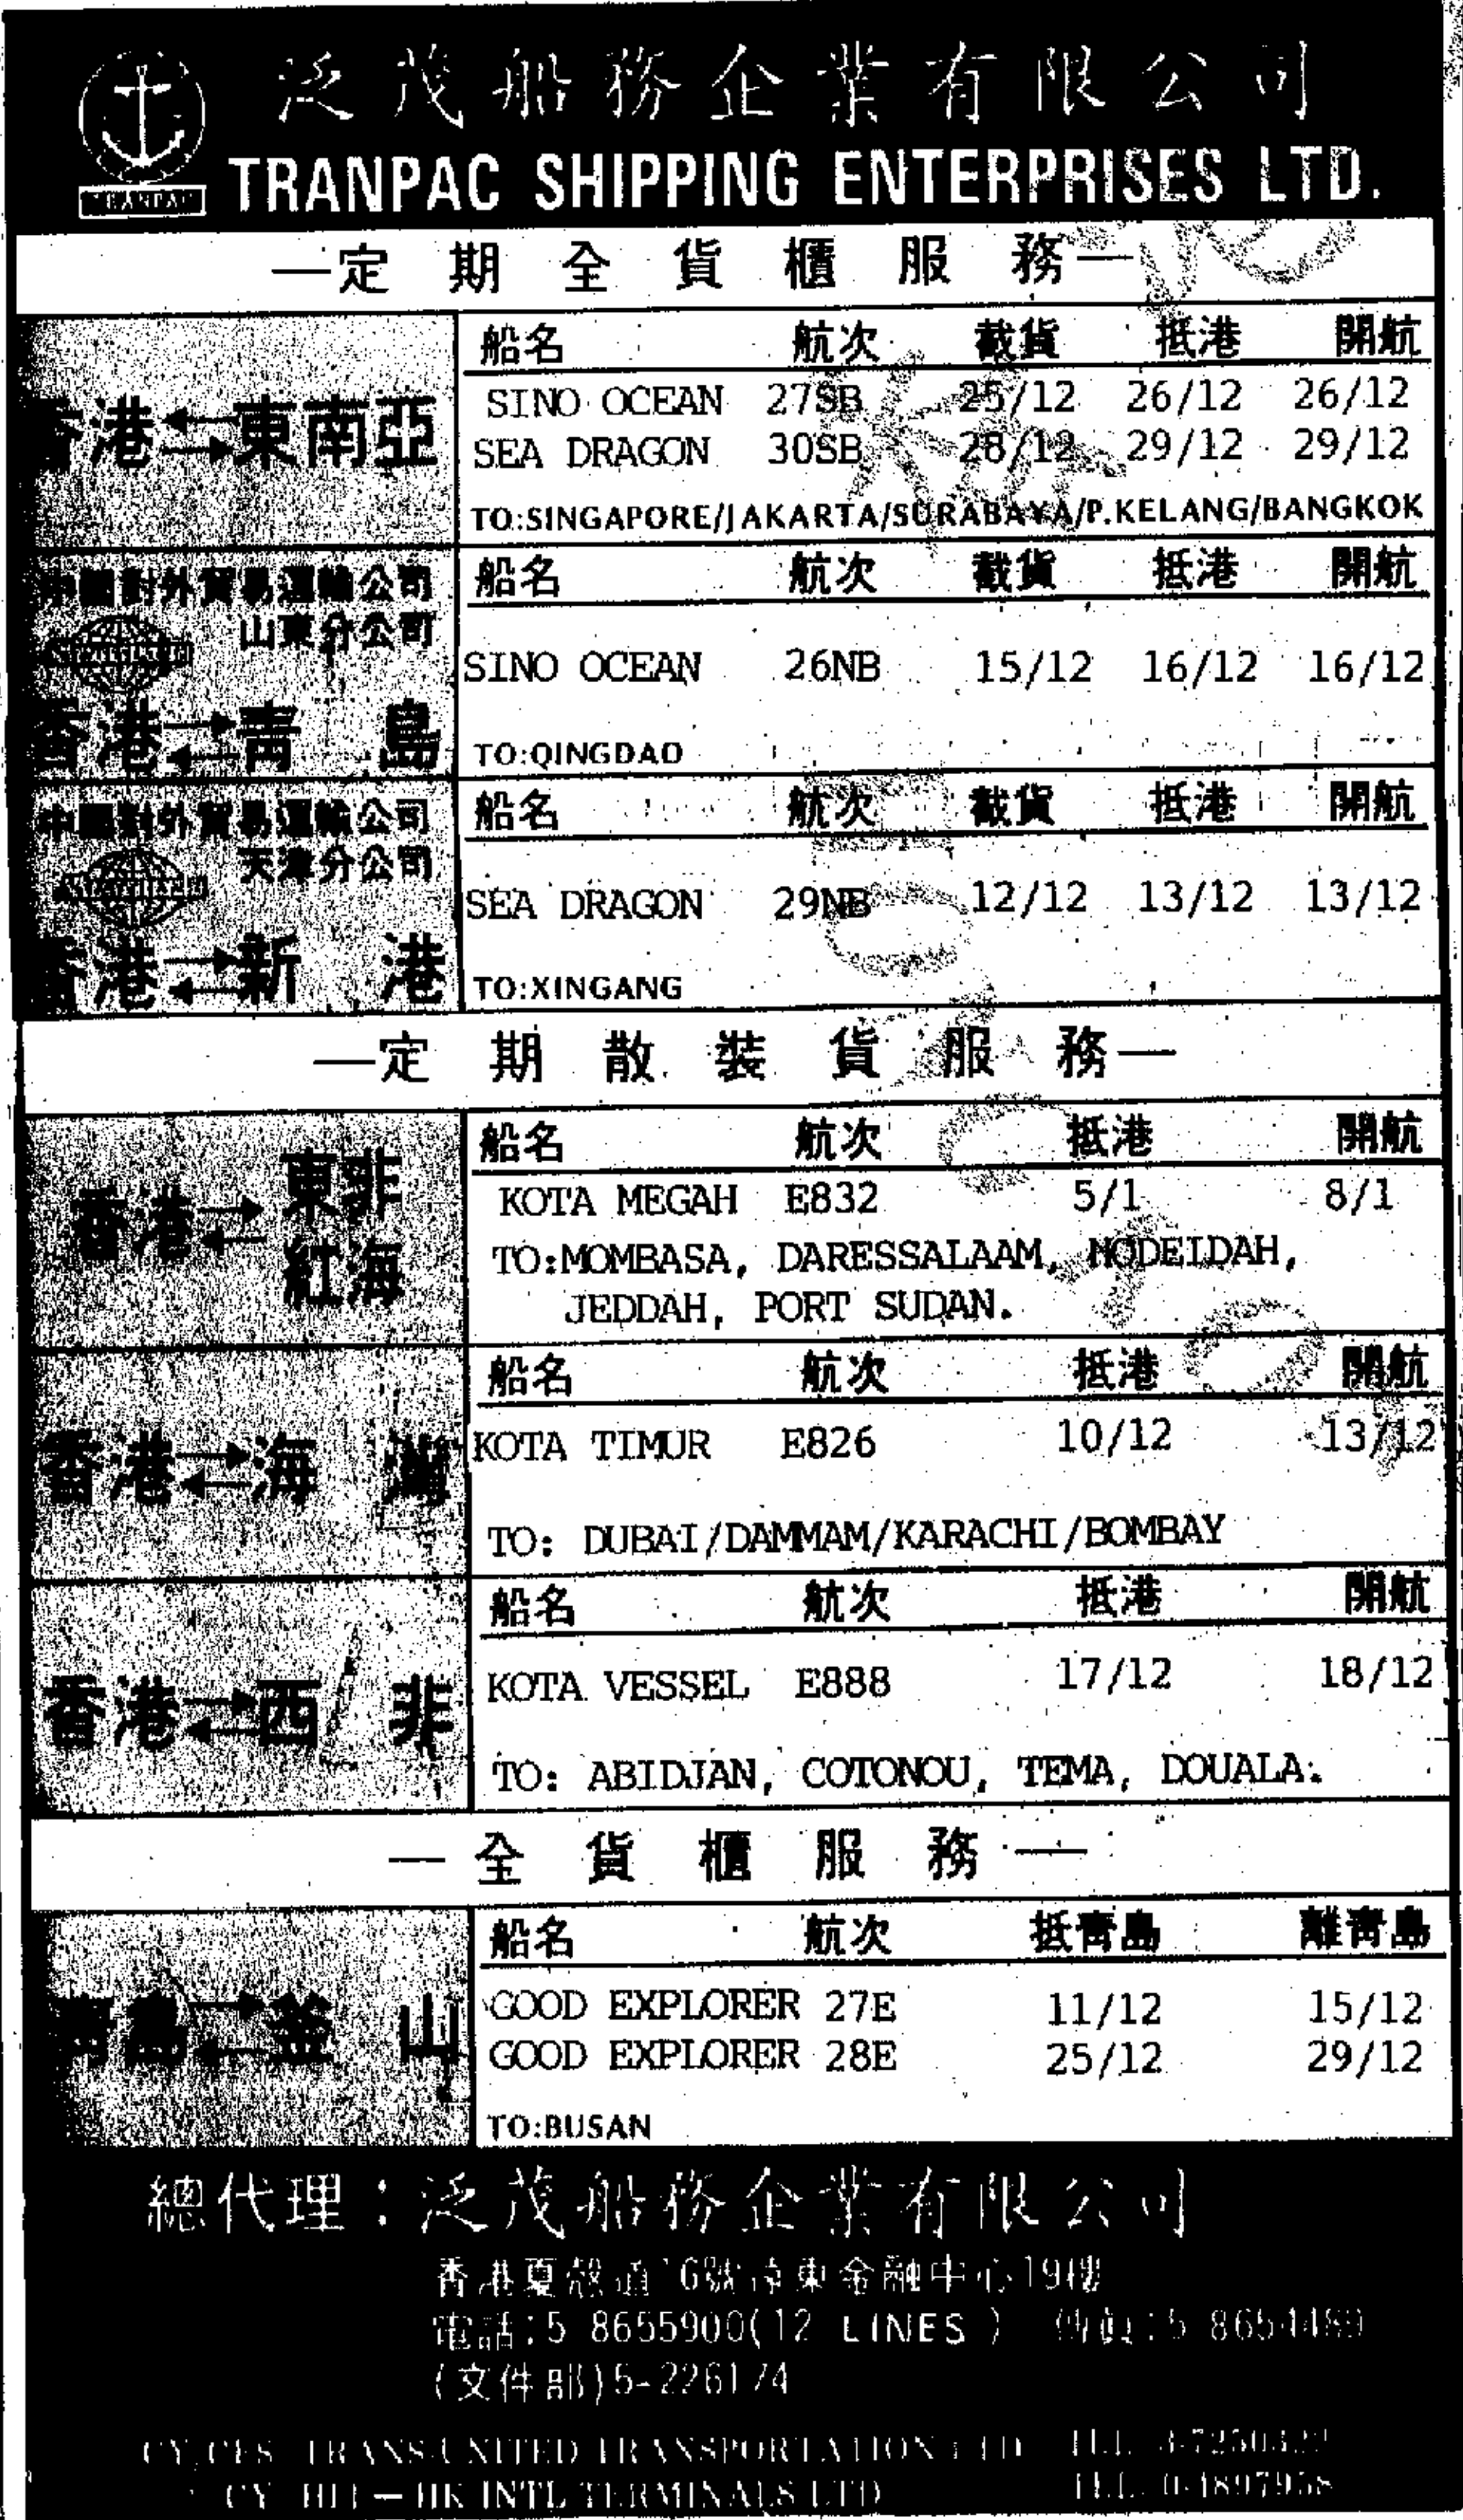 泛茂船務企業有限公司
TRANPAC SHIPPING ENTERPRISES LTD.
—定期全貨櫃服務—
香港 東南亞
船名 航次 截貨 抵港 開航
SINO OCEAN 27SB 25/12 26/12 26/12
SEA DRAGON 30SB 28/12 29/12 29/12
TO:SINGAPORE/JAKARTA/SURABAYA/P.KELANG/BANGKOK
中國對外貿易運輸公司
山東分公司
香港 青島
船名 航次 截貨 抵港 開航
SINO OCEAN 26NB 15/12 16/12 16/12
TO:QINGDAO
中國對外貿易運輸公司
天津分公司
香港 新港
船名 航次 截貨 抵港 開航
SEA DRAGON 29NB 12/12 13/12 13/12
TO:XINGANG
—定期散裝貨服務—
香港 東非
紅海
船名 航次 抵港 開航
KOTA MEGAH E832 5/1 8/1
TO:MOMBASA, DARESSALAAM, HODEIDAH,
JEDDAH, PORT SUDAN.
香港 海灣
船名 航次 抵港 開航
KOTA TIMUR E826 10/12 13/12
TO: DUBAI/DAMMAM/KARACHI/BOMBAY
香港 西非
船名 航次 抵港 開航
KOTA VESSEL E888 17/12 18/12
TO: ABIDJAN, COTONOU, TEMA, DOUALA.
—全貨櫃服務—
青島 釜山
船名 航次 抵青島 離青島
GOOD EXPLORER 27E 11/12 15/12
GOOD EXPLORER 28E 25/12 29/12
TO:BUSAN
總代理：泛茂船務企業有限公司
香港夏慤道16號遠東金融中心19樓
電話:5 8655900(12 LINES ) 傳真:5
(文件部)5-226174
CY/CFS TRANS-UNITED TRANSPORTATION LTD TEL.
CY HIT — HK INTL TERMINALS LTD TEL.